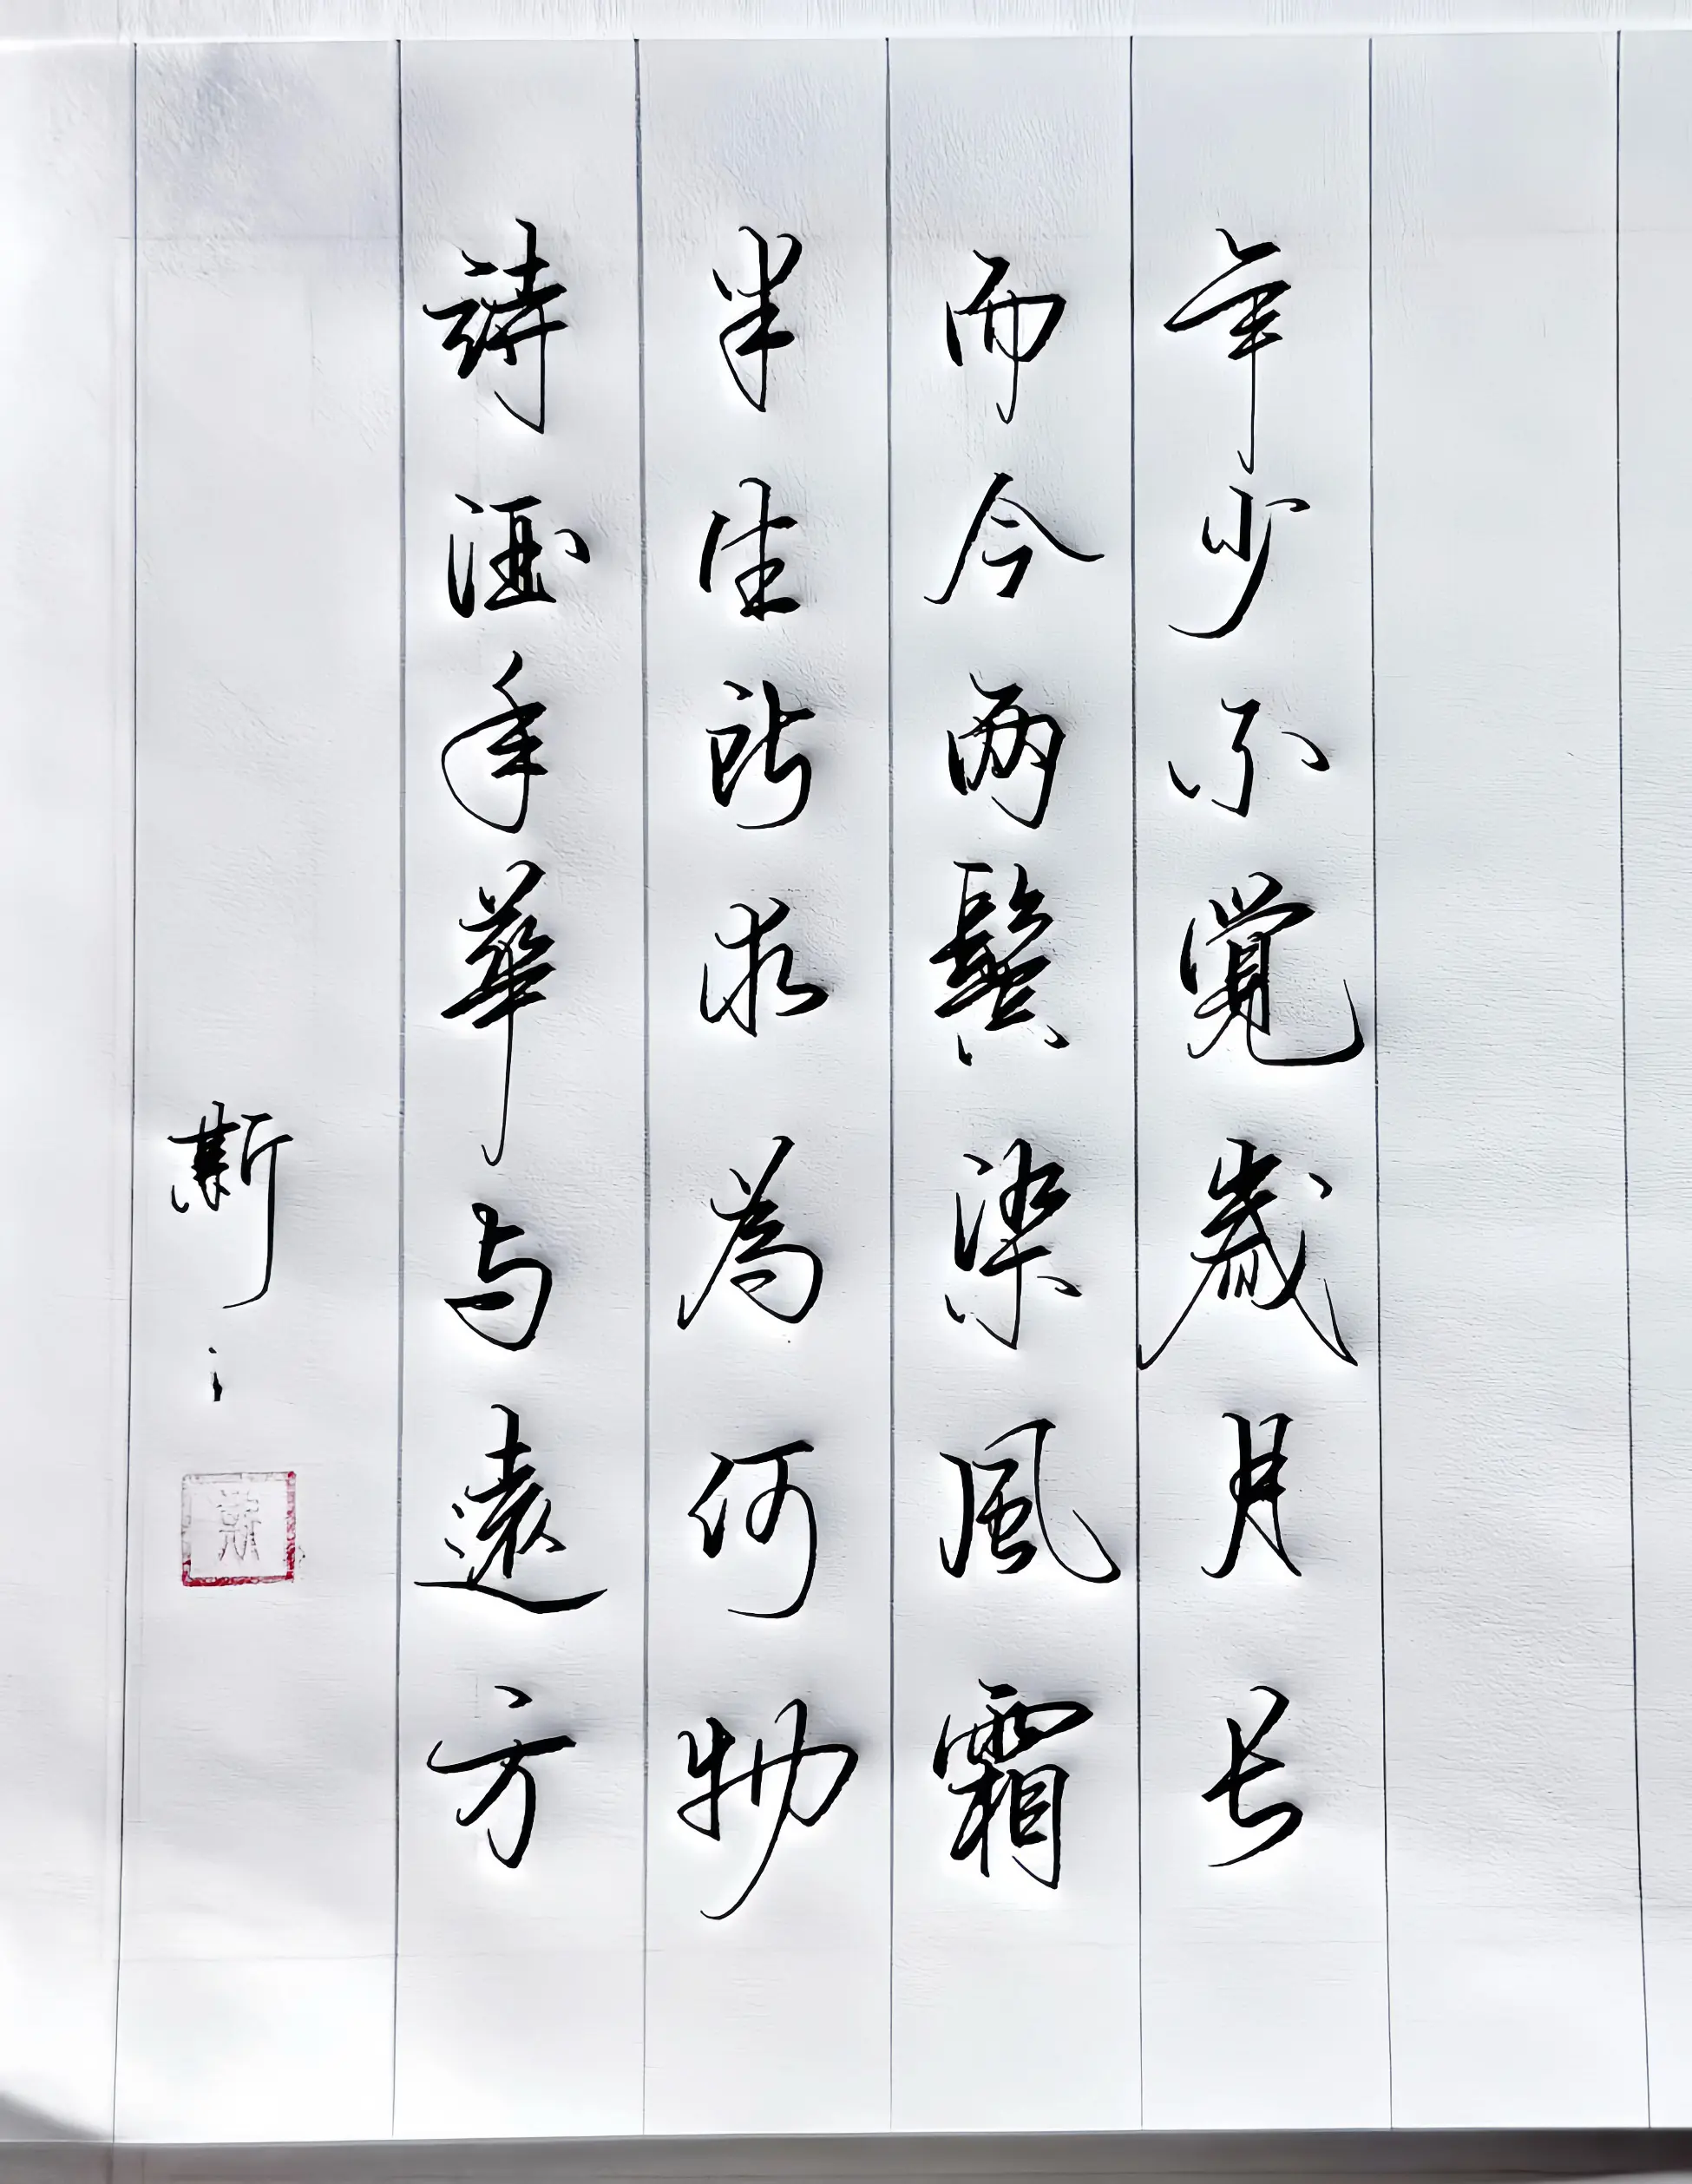 年少不覺歲月长
而今两鬓染風霜
半生所求為何物
詩酒年華与遠方
斯